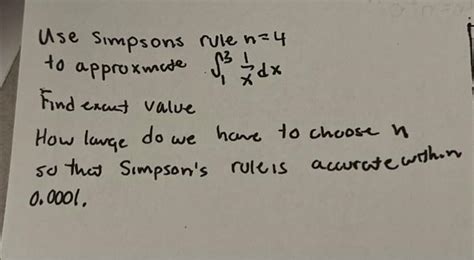 Use Simpsons rule n=4
to approxmate ∫₁³ 1/x dx
Find exact value
How large do we have to choose n
so that Simpson's rule is accurate within
0.0001.